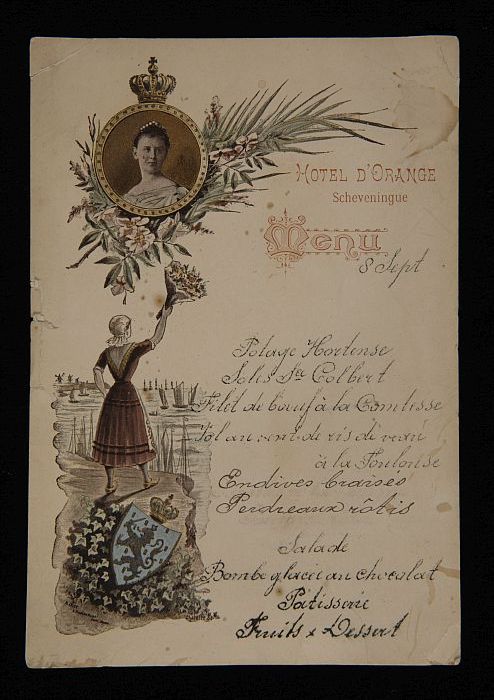 HOTEL D'ORANGE
Scheveningue
Menu
8 Sept
Potage Hortense
Soles Ste Colbert
Filet de boeuf à la Comtesse
Vol au vent de ris de veau
à la Toulouse
Endives braisés
Perdreaux rôtis
Salade
Bombe glacée au chocolat
Pâtisserie
Fruits & Dessert